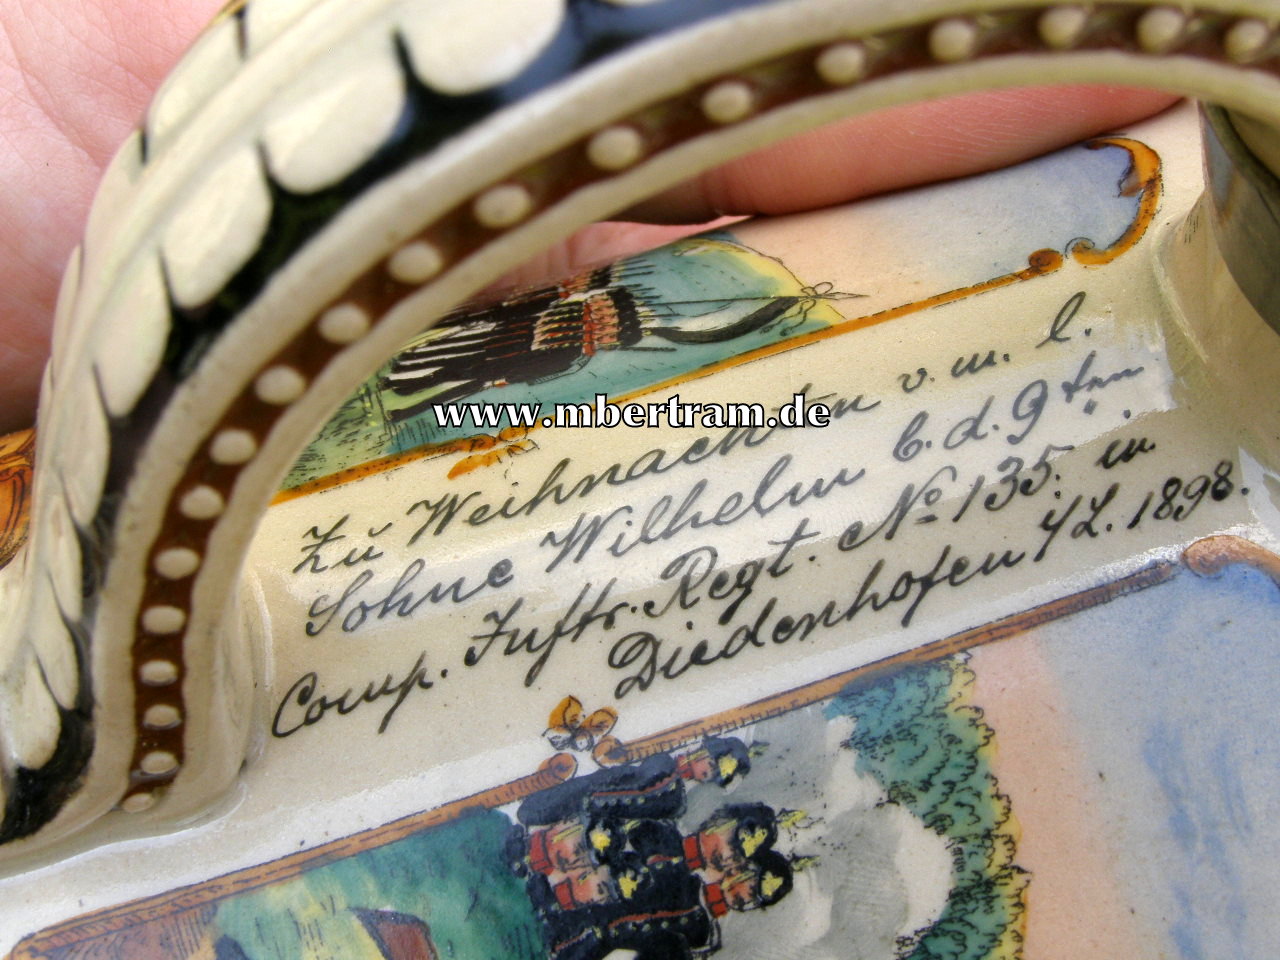 www.mbertram.de
Zu Weihnachten v. m. l.
Sohne Wilhelm b. d. 9ten
Comp. Inftr. Regt. No 135. in
Diedenhofen 1898.